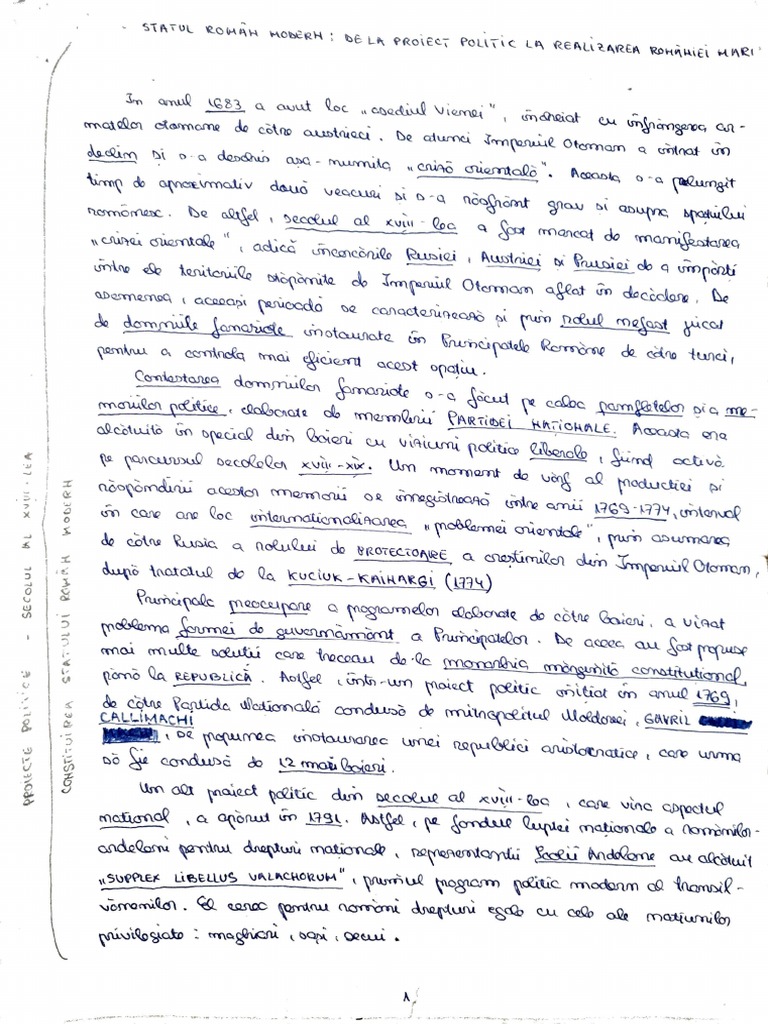 STATUL ROMÂN MODERN: DE LA PROIECT POLITIC LA REALIZAREA ROMÂNIEI MARI
În anul 1683 a avut loc „asediul Vienei", încheiat cu înfrângerea ar-
matelor otomane de către austrieci. De atunci Imperiul Otoman a intrat în
declin și s-a deschis asa-numita „criză orientală". Aceasta s-a prelungit
timp de aproximativ două veacuri și s-a răsfrânt grav si asupra spațiului
românesc. De altfel, secolul al XVIII-lea a fost marcat de manifestarea
„crizei orientale", adică încercările Rusiei, Austriei și Prusiei de a împărți
între ele teritoriile stăpânite de Imperiul Otoman aflat în decădere. De
asemenea, aceeași perioadă se caracterizează și prin rolul nefast jucat
de domniile fanariote instaurate în Principatele Române de către turci,
pentru a controla mai eficient acest spațiu.
Contestarea domniilor fanariote s-a făcut pe calea pamfletelor și a me-
moriilor politice, elaborate de membrii PARTIDEI NAȚIONALE. Aceasta era
alcătuită în special din boieri cu viziuni politice liberale, fiind activă
pe parcursul secolelor XVIII-XIX. Un moment de vârf al producției și
răspândirii acestor memorii se înregistrează între anii 1769-1774, interval
în care are loc internaționalizarea „problemei orientale", prin asumarea
de către Rusia a rolului de PROTECTOARE a creștinilor din Imperiul Otoman,
după tratatul de la KUCIUK-KAINARGI (1774)
Principala preocupare a programelor elaborate de către boieri, a vizat
problema formei de guvernământ a Principatelor. De aceea au fost propuse
mai multe soluții care treceau de la monarhia mărginită constituțional,
până la REPUBLICĂ. Astfel, într-un proiect politic inițiat în anul 1769,
de către Partida Națională condusă de mitropolitul Moldovei, GAVRIL
CALLIMACHI, se propunea instaurarea unei republici aristocratice, care urma
să fie condusă de 12 mari boieri.
Un alt proiect politic din secolul al XVIII-lea, care viza aspectul
național, a apărut în 1791. Astfel, pe fondul luptei naționale a românilor-
ardeleni pentru drepturi naționale, reprezentanții Școlii Ardelene au alcătuit
„SUPPLEX LIBELLUS VALACHORUM", primul program politic modern al transil-
vănenilor. El cerea pentru români drepturi egale cu cele ale națiunilor
privilegiate: maghiari, sași, secui.
1
PROIECTE POLITICE - SECOLUL AL XVIII-LEA
CONSTITUIREA STATULUI ROMÂN MODERN